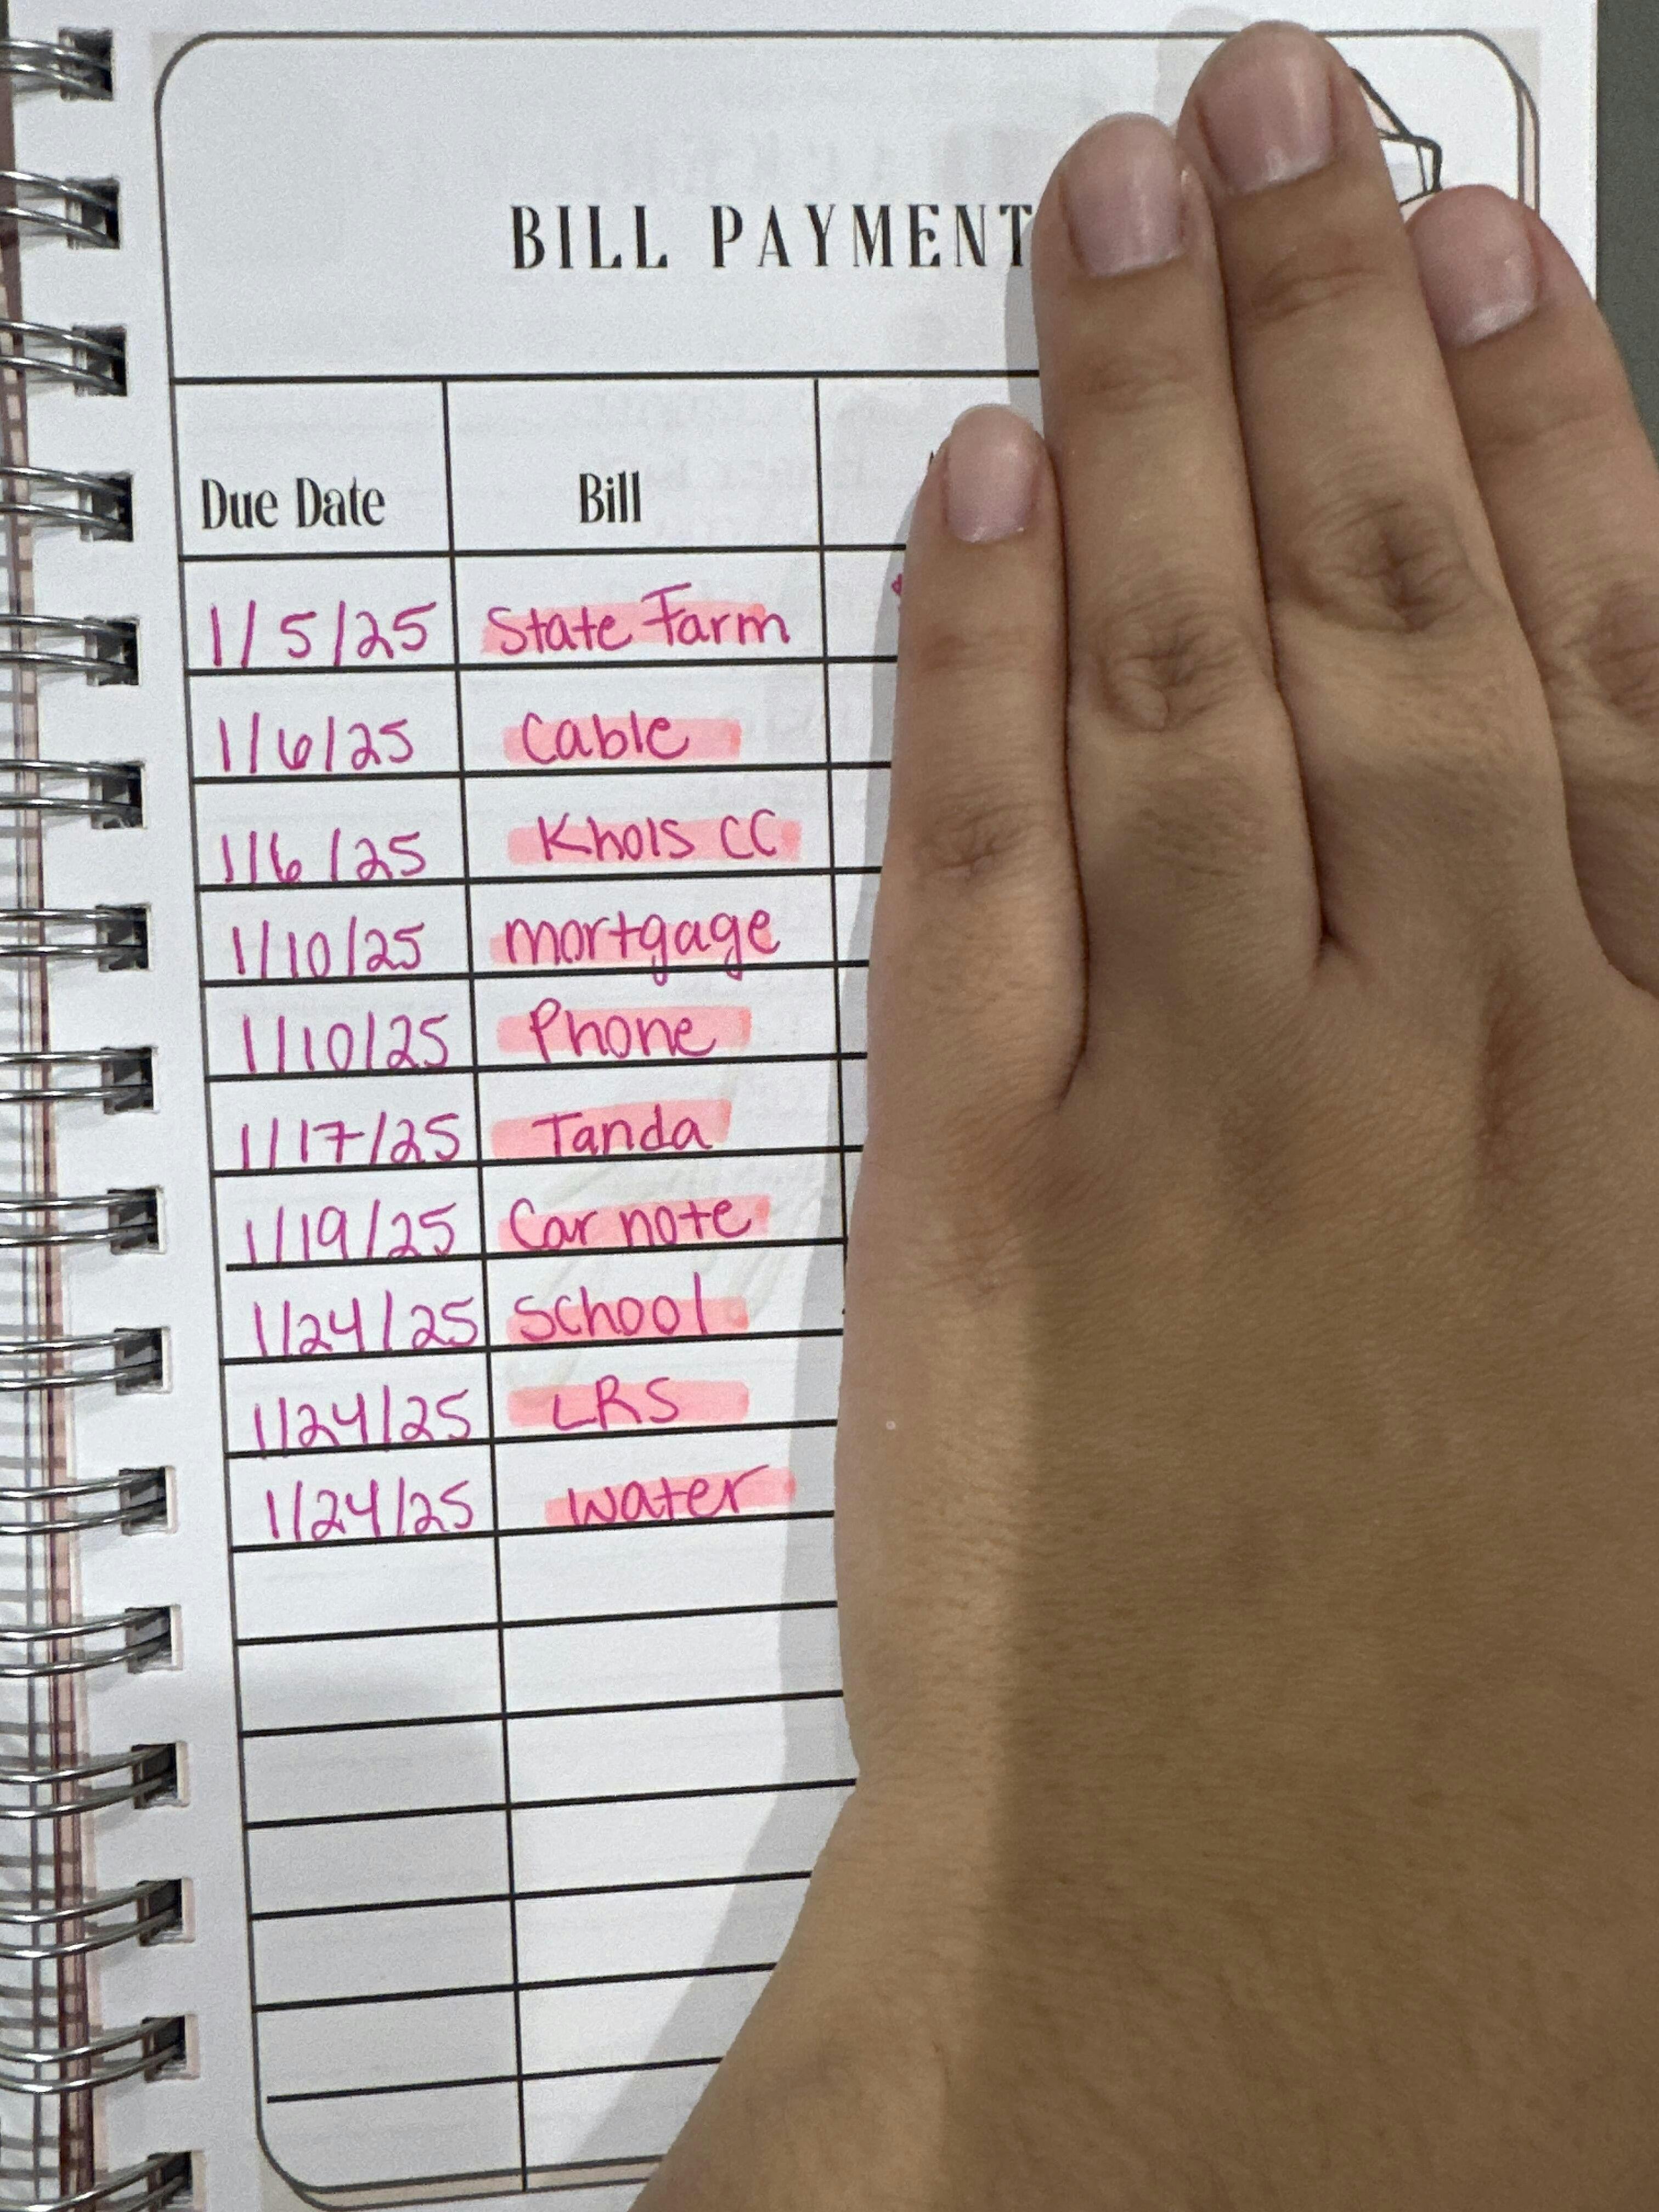 BILL PAYMENT
Due Date Bill
1/5/25 State Farm
1/6/25 Cable
1/6/25 Khols CC
1/10/25 mortgage
1/10/25 Phone
1/17/25 Tanda
1/19/25 Car note
1/24/25 School
1/24/25 LRS
1/24/25 water